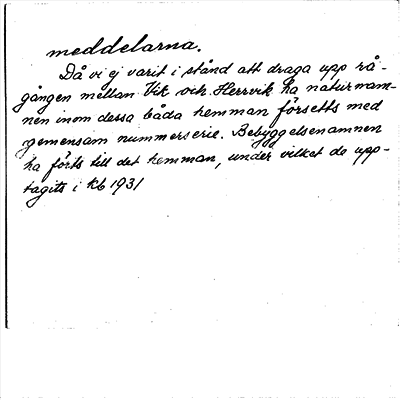 meddelarna.
Då vi ej varit i stånd att draga upp rå-
gången mellan Vik och Herrvik ha naturnam-
nen inom dessa båda hemman försetts med
gemensam nummerserie. Bebyggelsenamnen
ha förts till det hemman, under vilket de upp-
tagits i kb 1931